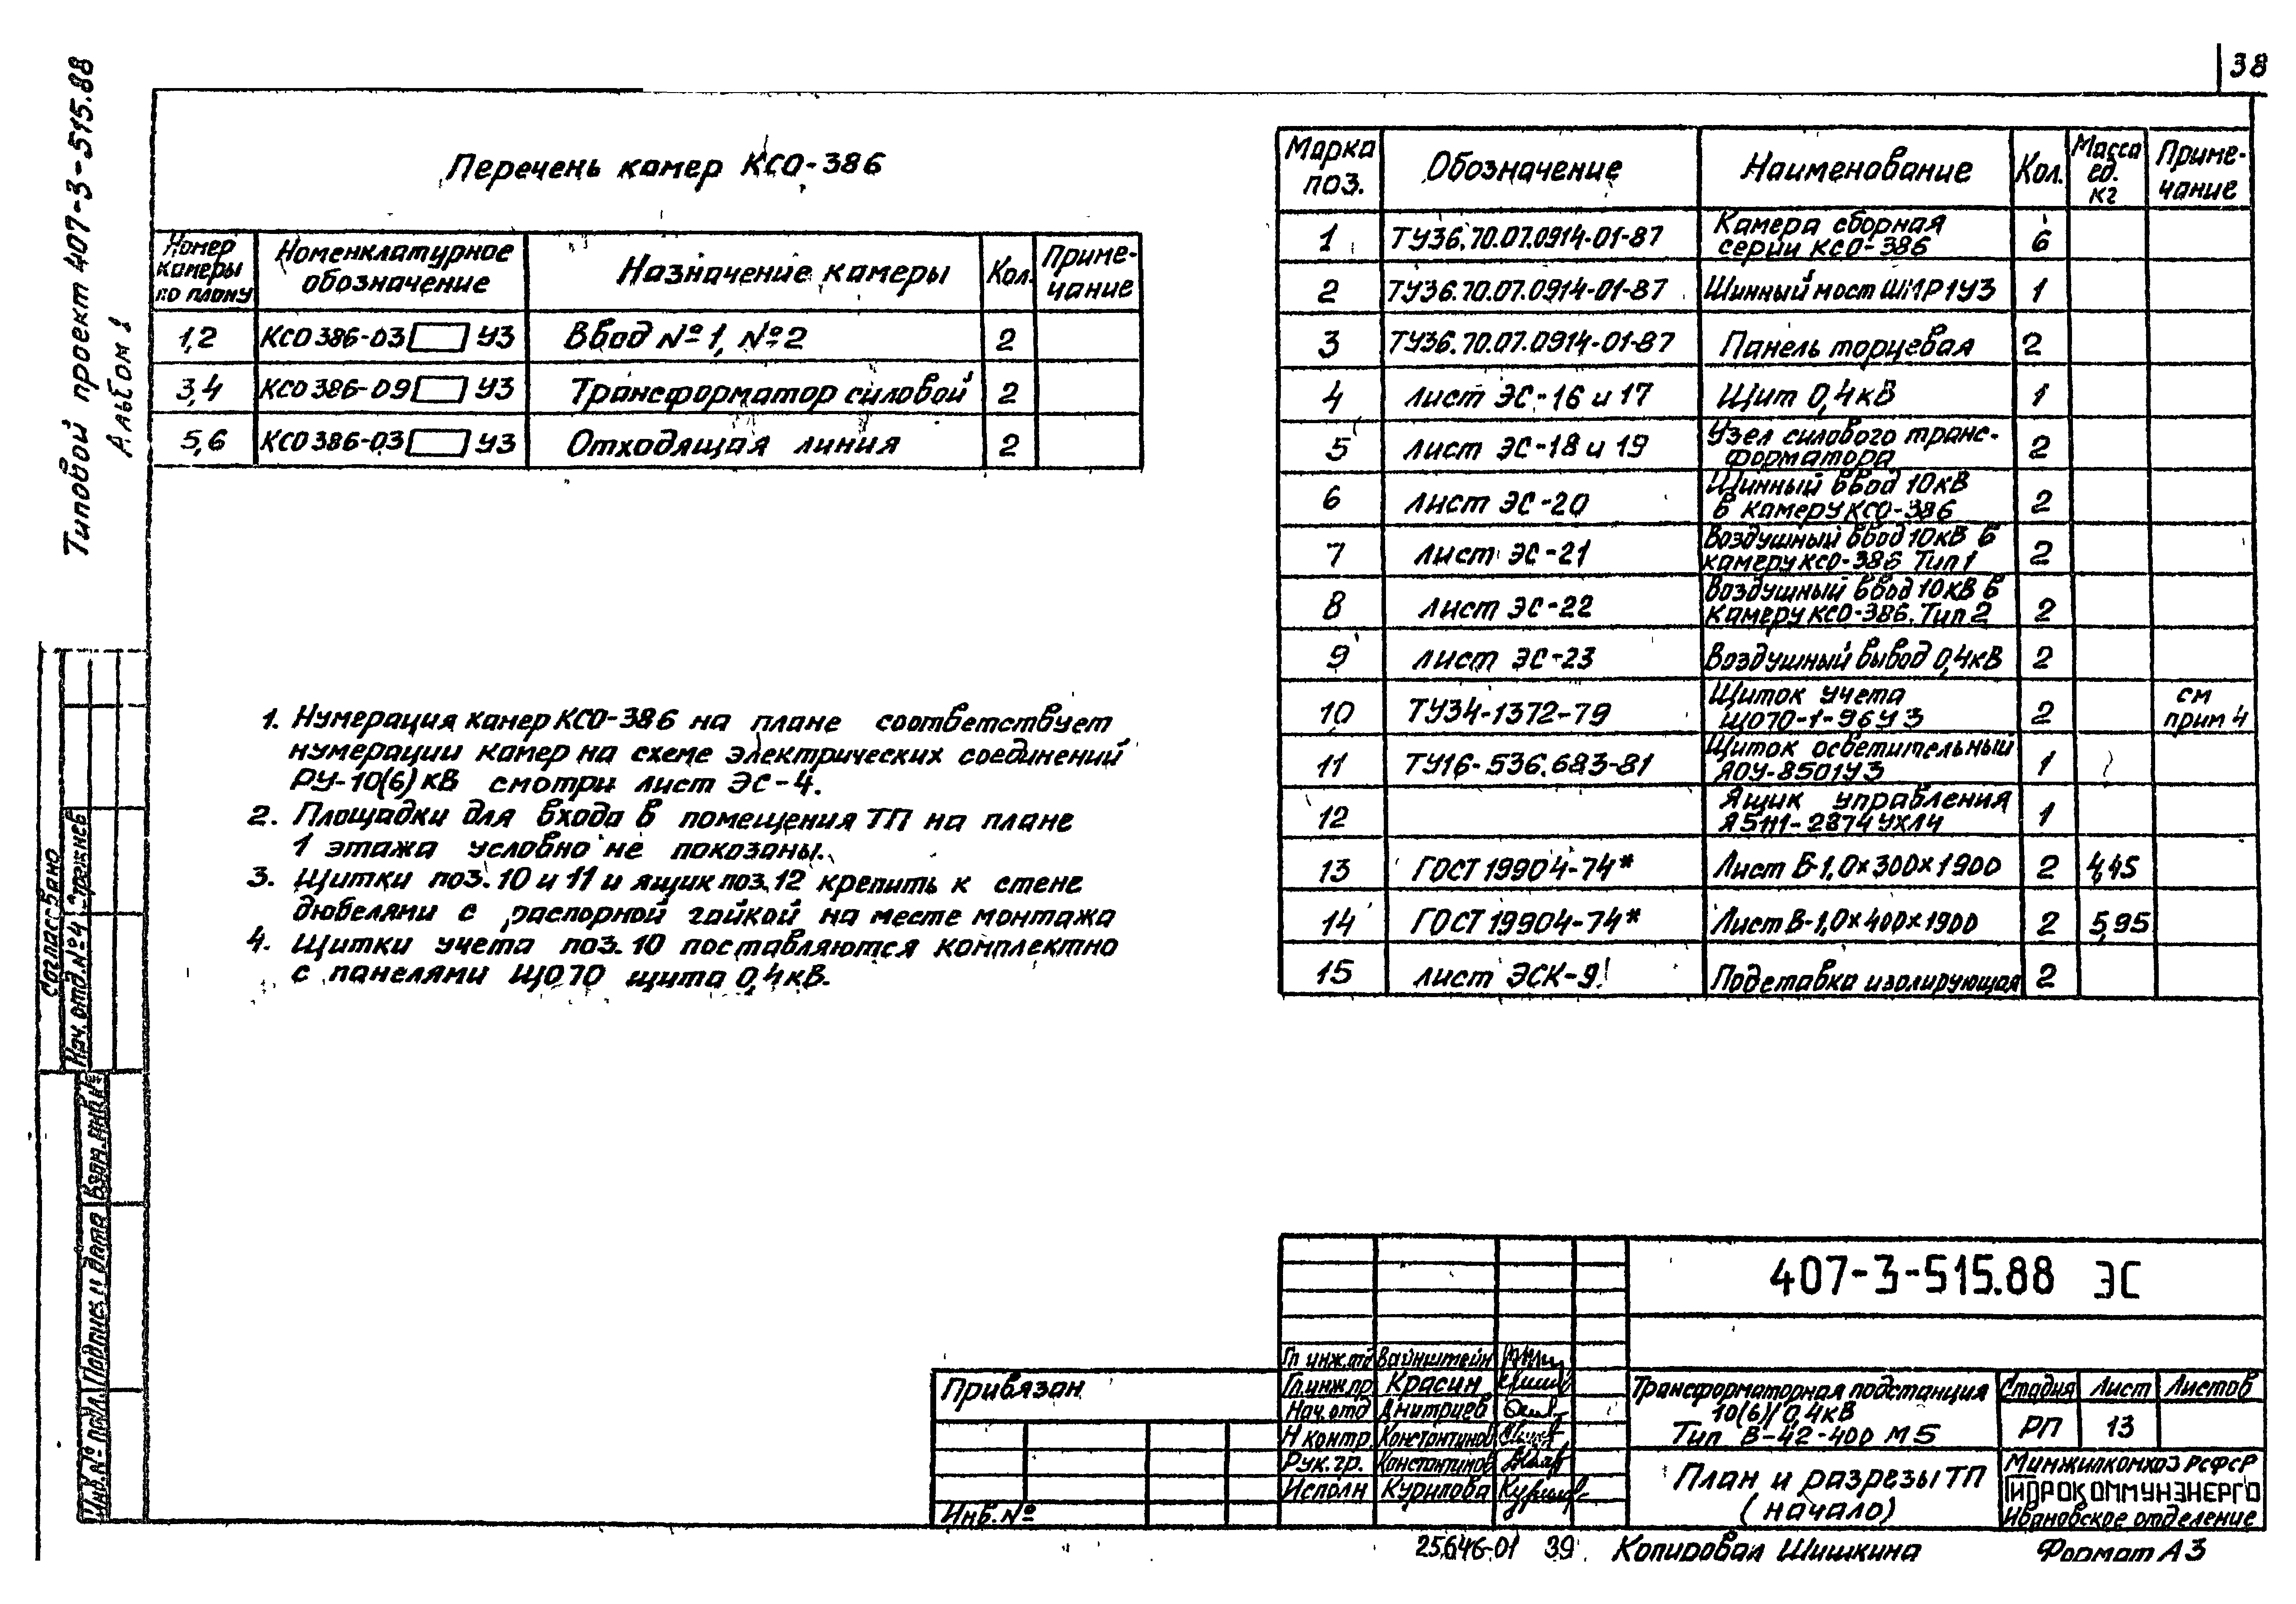 38
Типовой проект 407-3-515.88
Альбом 1
Перечень камер КСО-386
Номер камеры по плану | Номенклатурное обозначение | Назначение камеры | Кол. | Приме-чание
1,2 | КСО 386-03 У3 | Ввод №1, №2 | 2
3,4 | КСО 386-09 У3 | Трансформатор силовой | 2
5,6 | КСО 386-03 У3 | Отходящая линия | 2
1. Нумерация камер КСО-386 на плане соответствует
нумерации камер на схеме электрических соединений
РУ-10(6) кВ смотри лист ЭС-4.
2. Площадки для входа в помещения ТП на плане
1 этажа условно не показаны.
3. Щитки поз. 10 и 11 и ящик поз. 12 крепить к стене
дюбелями с распорной гайкой на месте монтажа
4. Щитки учета поз. 10 поставляются комплектно
с панелями ЩО70 щита 0,4кВ.
Марка поз. | Обозначение | Наименование | Кол. | Масса ед. кг | Приме-чание
1 | ТУ36.70.07.0914-01-87 | Камера сборная серии КСО-386 | 6
2 | ТУ36.70.07.0914-01-87 | Шинный мост ШМР1У3 | 1
3 | ТУ36.70.07.0914-01-87 | Панель торцевая | 2
4 | Лист ЭС-16 и 17 | Щит 0,4кВ | 1
5 | Лист ЭС-18 и 19 | Узел силового транс-форматора | 2
6 | Лист ЭС-20 | Шинный ввод 10кВ в камеру КСО-386 | 2
7 | Лист ЭС-21 | Воздушный ввод 10кВ в камеру КСО-386 Тип 1 | 2
8 | Лист ЭС-22 | Воздушный ввод 10кВ в камеру КСО-386. Тип 2 | 2
9 | Лист ЭС-23 | Воздушный вывод 0,4кВ | 2
10 | ТУ34-1372-79 | Щиток учета ЩО70-1-96У3 | 2 | см прим 4
11 | ТУ16-536.683-81 | Щиток осветительный ЯОУ-8501У3 | 1
12 | Ящик управления Я5111-2874УХЛ4 | 1
13 | ГОСТ 19904-74* | Лист Б-1,0×300×1900 | 2 | 4,45
14 | ГОСТ 19904-74* | Лист В-1,0×400×1900 | 2 | 5,95
15 | лист ЭСК-9 | Подставка изолирующая | 2
Согласовано
Нач. отд. №4
Инв. № подл.
Подпись и дата
Взам. инв. №
407-3-515.88 ЭС
Гл инж. отд Вайнштейн
Гл. инж. пр Красин
Нач. отд Дмитриев
Н контр. Константинов
Рук. гр. Константинов
Исполн Курилова
Привязан
Инв. №
Трансформаторная подстанция
10(6)/0,4кВ
Тип В-42-400 М5
Стадия | Лист | Листов
РП | 13
План и разрезы ТП
(начало)
Минжилкомхоз РСФСР
ГИПРОКОММУНЭНЕРГО
Ивановское отделение
25646-01 39 Копировал Шишкина Формат А3